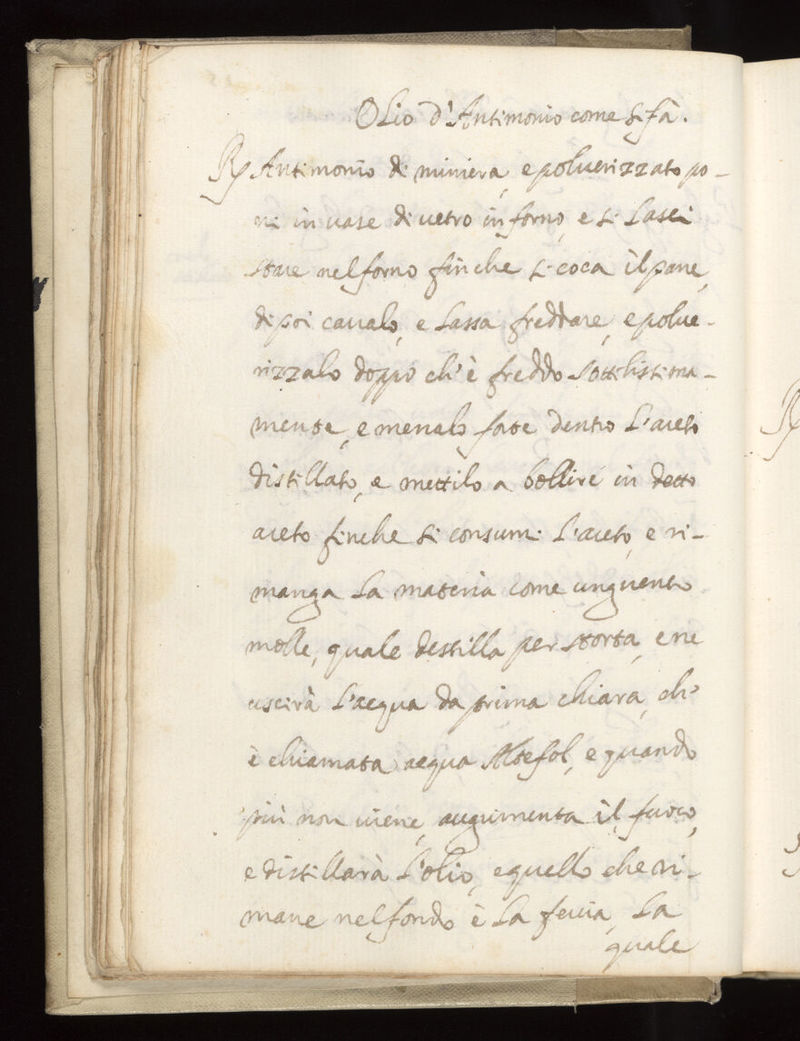 Olio d'Antimonio come si fà.
Rp Antimonio di miniera, e poluerizzato po-
ni in uase di uetro in forno, e si lasci
stare nel forno finche si coca il pane,
di poi caualo, e lassa freddare, e polue-
rizzalo doppo ch'è freddo sottilissima-
mente, e menalo fate dentro l'aceto
distillato, e mettilo a bollire in detto
aceto finche si consumi l'aceto, e ri-
manga la materia come unguento
molle, quale destilla per storta, e ne
uscirà l'acqua da prima chiara, ch'
è chiamata acqua Altefol, e quando
più non uiene, augumenta il fuoco,
e distillarà l'olio, e quello che ri-
mane nel fondo è la feccia, la
quale